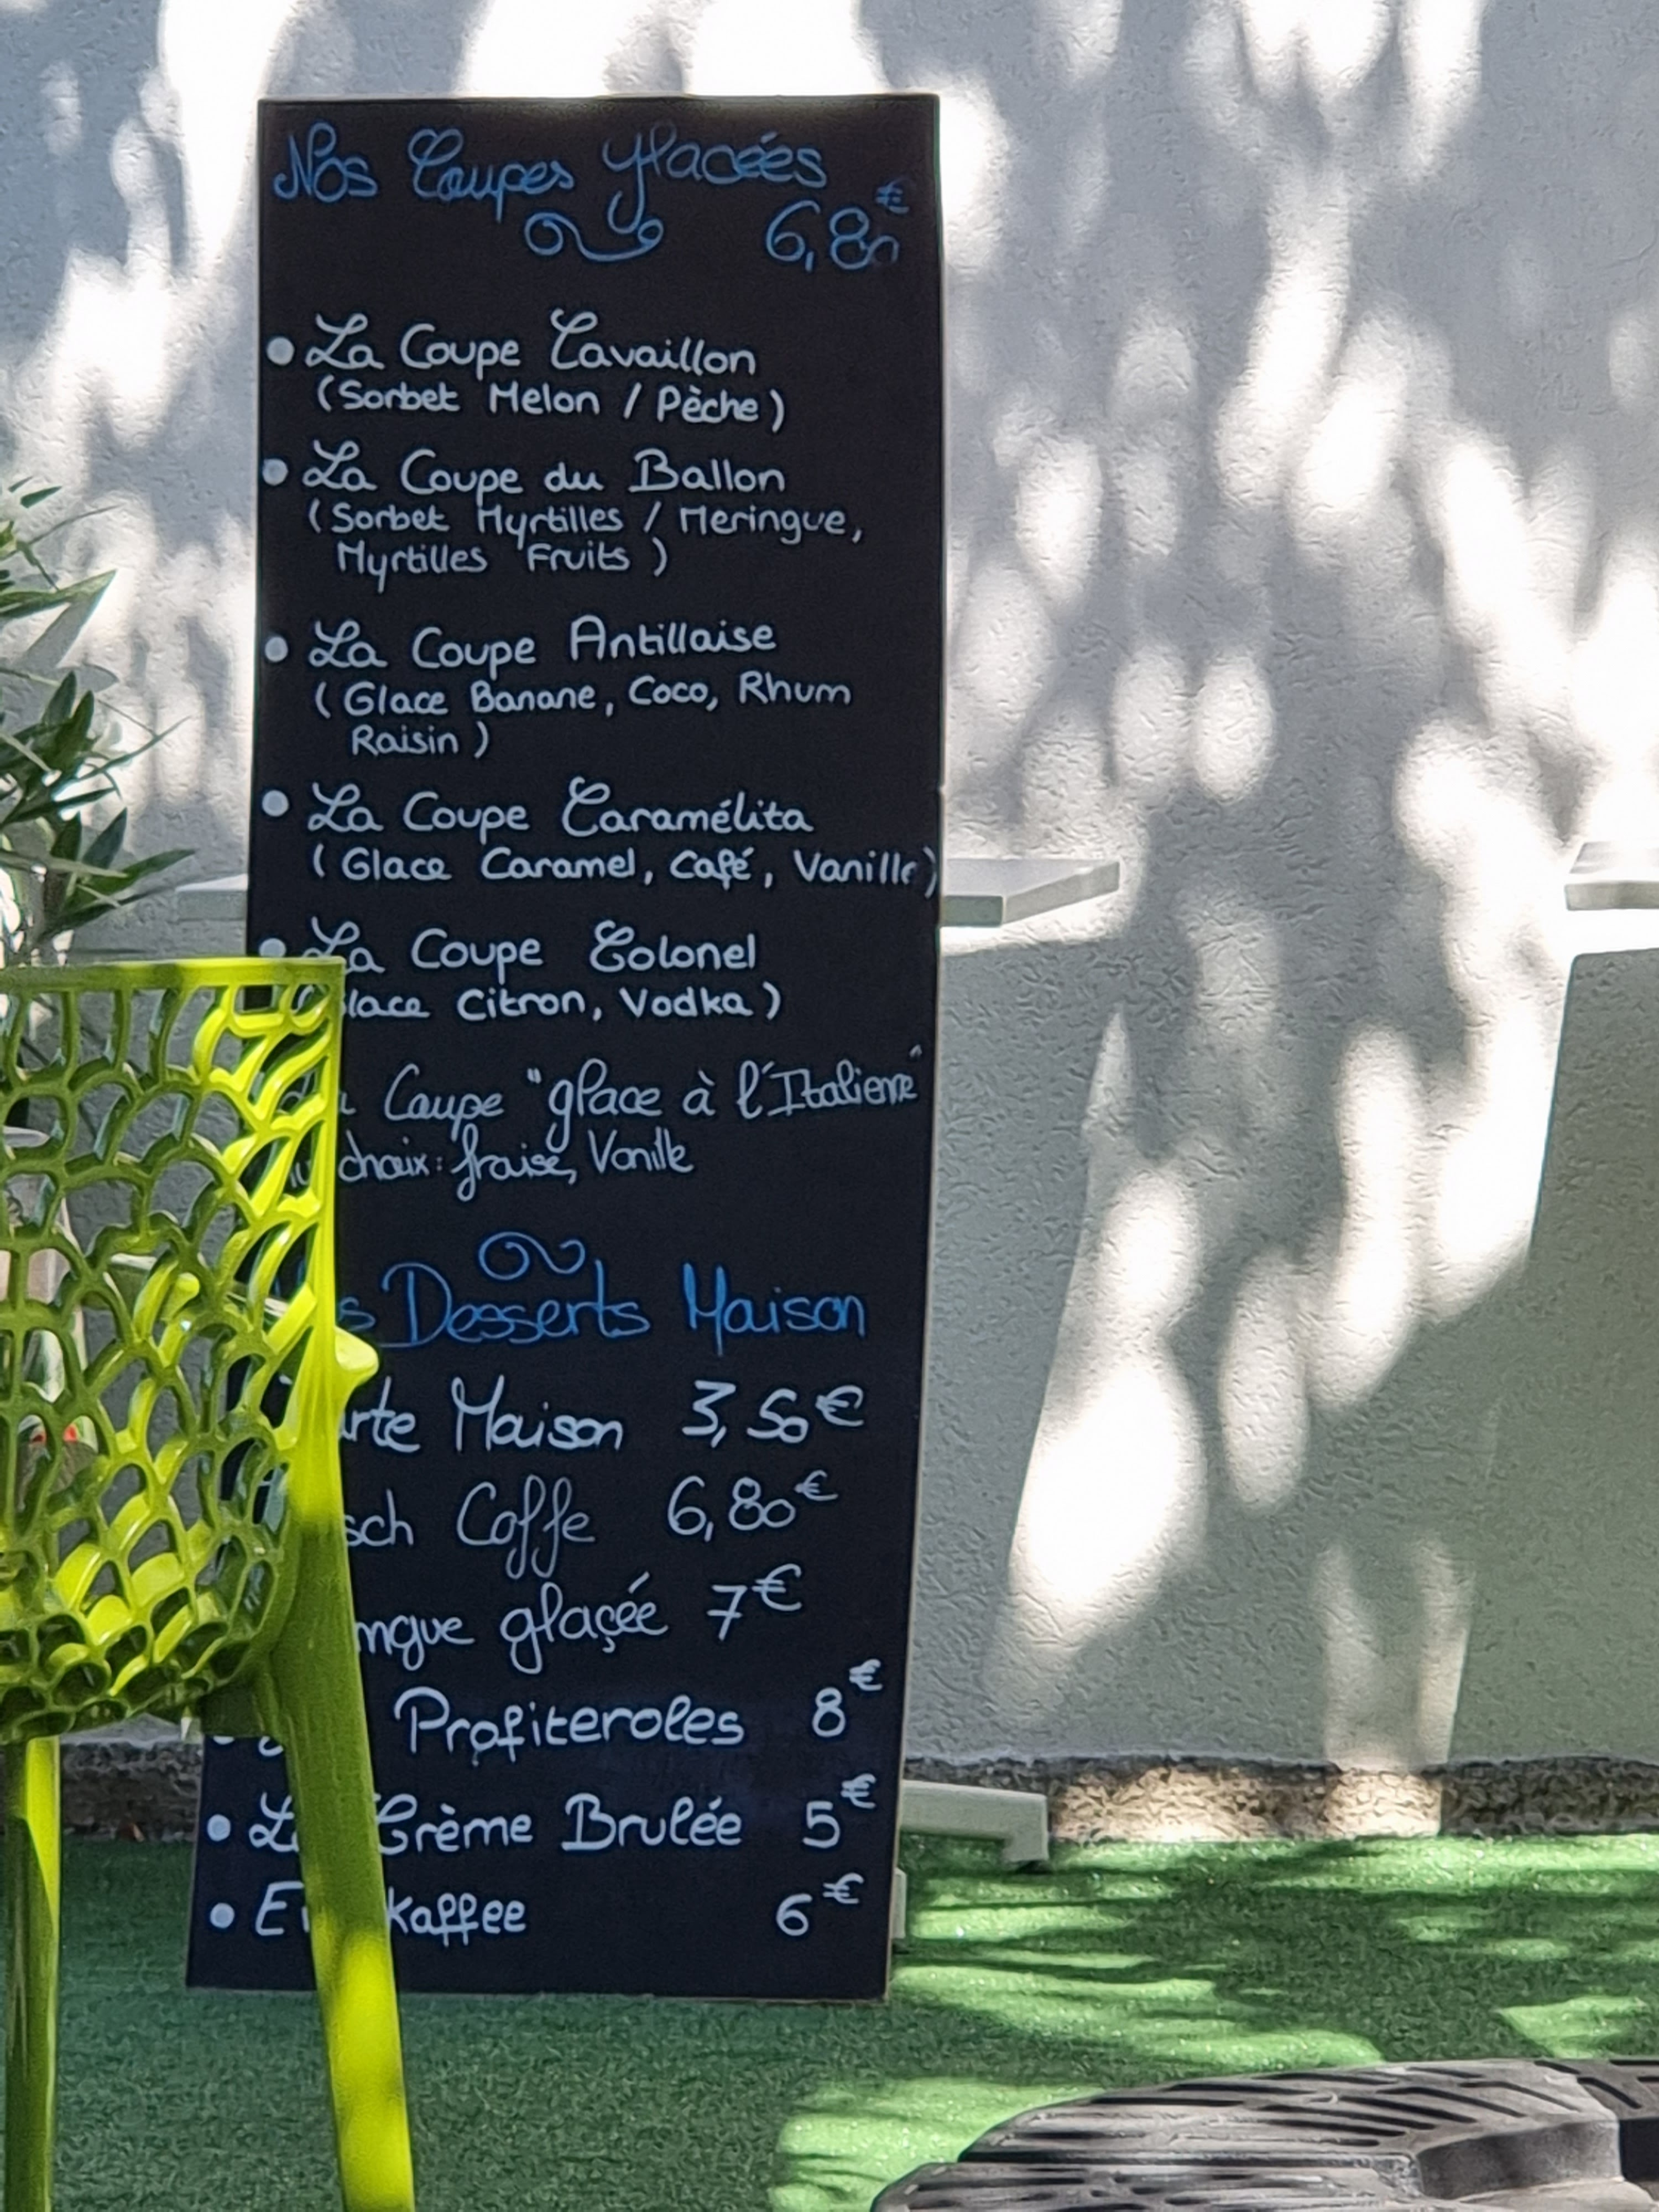 Nos Coupes glacées
6,80€
• La Coupe Cavaillon
(Sorbet Melon / Pèche)
• La Coupe du Ballon
(Sorbet Myrtilles / Meringue,
Myrtilles Fruits)
• La Coupe Antillaise
(Glace Banane, Coco, Rhum
Raisin)
• La Coupe Caramélita
(Glace Caramel, Café, Vanille)
• La Coupe Colonel
lace Citron, Vodka)
Coupe "glace à l'Italienne"
choix: fraise, Vanille
s Desserts Maison
rte Maison 3,50€
sch Coffe 6,80€
ngue glaçée 7€
Profiteroles 8€
• La Crème Brulée 5€
• E kaffee 6€